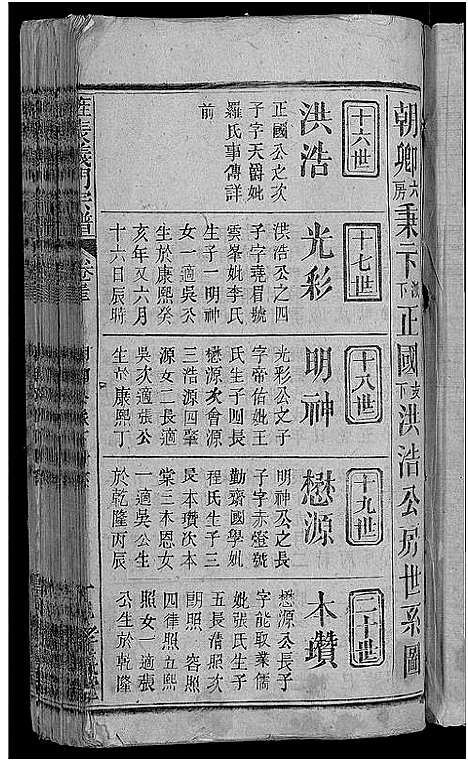 朝卿六房秉卞派下正國支下洪浩公房世系圖
十六世
洪浩
正國公之次
子字天爵妣
羅氏事傳詳
前
十七世
光彩
洪浩公之四
子字堯眉號
雲峯妣李氏
生子一明神
女一適吳公
生於康熙癸
亥年又六月
十六日辰時
十八世
明神
光彩公之子
字帝佑妣王
氏生子四長
懋源次會源
三浩源四肇
源女二長適
吳次適張公
生於康熙丁
十九世
懋源
明神公之長
子字赤燈號
勤齋國學妣
程氏生子三
長本瓚次本
棠三本恩女
一適吳公生
於乾隆丙辰
二十世
本瓚
懋源公長子
字能取業儒
妣張氏生子
五長蒨照次
朗照 容照
四律照五熙
照女一適張
公生於乾隆
義門宗譜